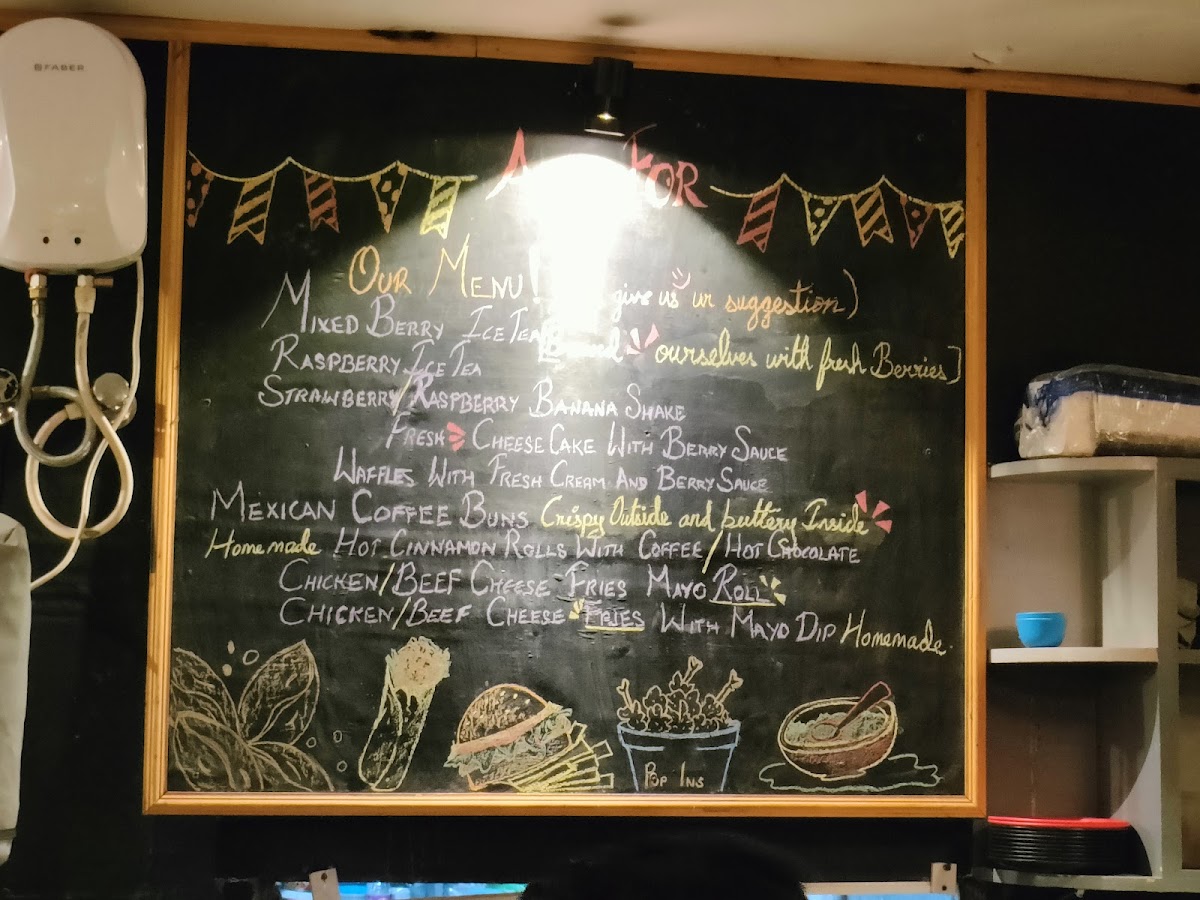 FABER
OUR MENU! give us ur suggestion)
MIXED BERRY ICE TEA
ourselves with fresh Berries]
RASPBERRY ICE TEA
STRAWBERRY/RASPBERRY BANANA SHAKE
FRESH CHEESE CAKE WITH BERRY SAUCE
WAFFLES WITH FRESH CREAM AND BERRY SAUCE
MEXICAN COFFEE BUNS Crispy Outside and buttery Inside
Homemade HOT CINNAMON ROLLS WITH COFFEE/HOT CHOCOLATE
CHICKEN/BEEF CHEESE FRIES MAYO ROLL
CHICKEN/BEEF CHEESE FRIES WITH MAYO DIP Homemade.
POP INS